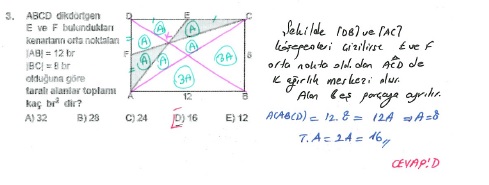 3. ABCD dikdörtgen
E ve F bulundukları
kenarların orta noktaları
|AB| = 12 br
|BC| = 8 br
olduğuna göre
taralı alanlar toplamı
kaç br² dir?
D E C
A A
F A K A 3A
A A
3A
A 12 B
8
A) 32 B) 28 C) 24 D) 16 E) 12
Şekilde [DB] ve [AC]
köşegenleri çizilirse E ve F
orta nokta olduğundan ACD de
K ağırlık merkezi olur.
Alan eş parçaya ayrılır.
A(ABCD) = 12.8 = 12A ⇒ A=8
T.A = 2A = 16
CEVAP: D